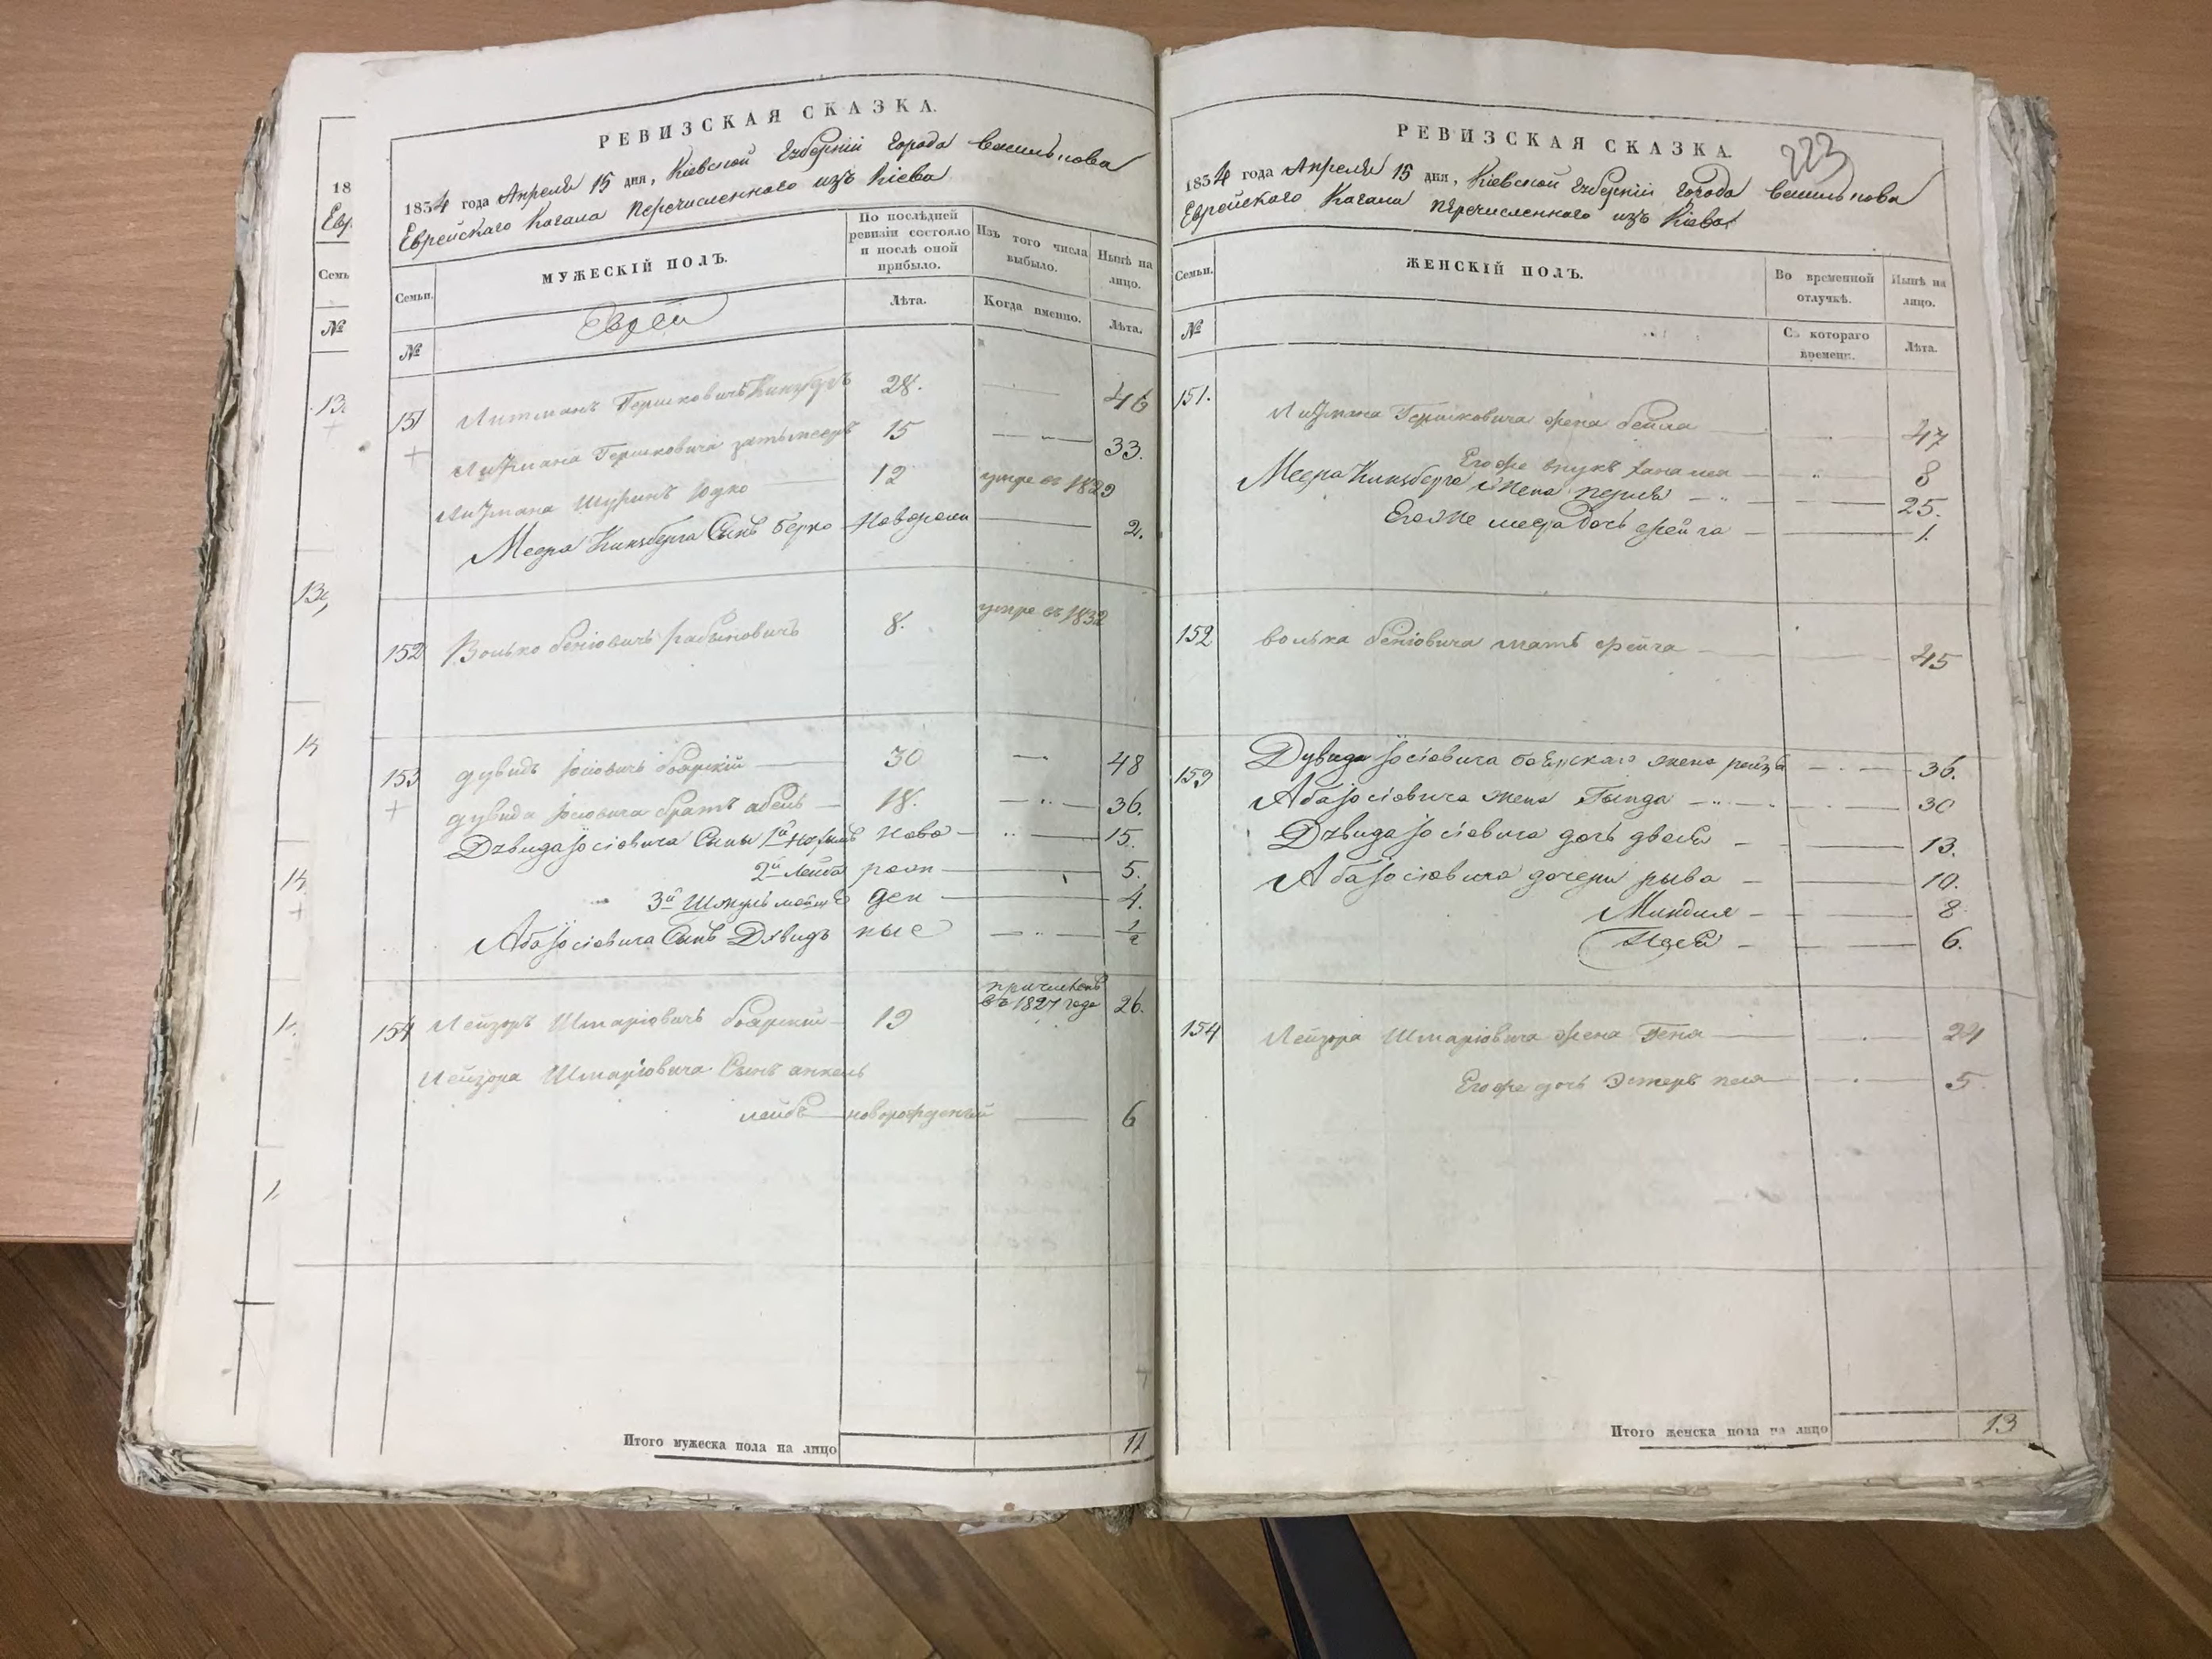 РЕВИЗСКАЯ СКАЗКА.
1834 года Апреля 15 дня, Кіевской Губерніи Города Василькова
Еврейскаго Кагала Перечисленнаго изъ Кіева
Семьи.
МУЖЕСКІЙ ПОЛЪ.
По послѣдней ревизіи состояло и послѣ оной прибыло.
Изъ того числа выбыло.
Нынѣ на лицо.
№
Еврей
Лѣта.
Когда именно.
Лѣта.
151 Литманъ Гершковичъ 28. 46
Литмана Гершковича зять мееръ 15 33.
Литмана Шуринъ Юдко 12 умре въ 1829
Меера Кинзберга Сынъ Берко Новорожд 2.
152 Волько беніовичъ рабиновичъ 8. умре въ 1832
153 дувидъ Іосіовичъ боярскій 30 48
дувида Іосіовича братъ абель 18. 36.
Дувида Іосіовича Сыны 1й Ново 15.
2й Лейба рож 5.
3й Шмуль ден 4.
Аба Іосіовича Сынъ Дувидъ ные 1/2
154 Лейзоръ Шмаріовичъ боярскій 19 причисленъ въ 1827 года 26.
Лейзора Шмаріовича Сынъ анкель
лейбъ новорожденный 6
Итого мужеска пола на лицо 11
РЕВИЗСКАЯ СКАЗКА.
223
1834 года Апреля 15 дня, Кіевской Губерніи Города Василькова
Еврейскаго Кагала Перечисленнаго изъ Кіева
Семьи.
ЖЕНСКІЙ ПОЛЪ.
Во временной отлучкѣ.
Нынѣ на лицо.
№
Съ котораго времени.
Лѣта.
151. Литмана Гершковича жена бейла 47
Егоже внука Хана леа 8
Меера Кинзберга Жена перля 25.
Егоже меера дочь фейга 1.
152 волька беніовича мать фейга 45
153 Дувида Іосіовича боярскаго жена рейза 36.
Аба Іосіовича жена Гинда 30
Дувида Іосіовича дочь двося 13.
Аба Іосіовича дочери рыва 10.
Миндля 8
6.
154 Лейзора Шмаріовича жена Геня 24
Егоже дочь Эстеръ песя 5
Итого женска пола на лицо 13
18
Евр.
Семь
№